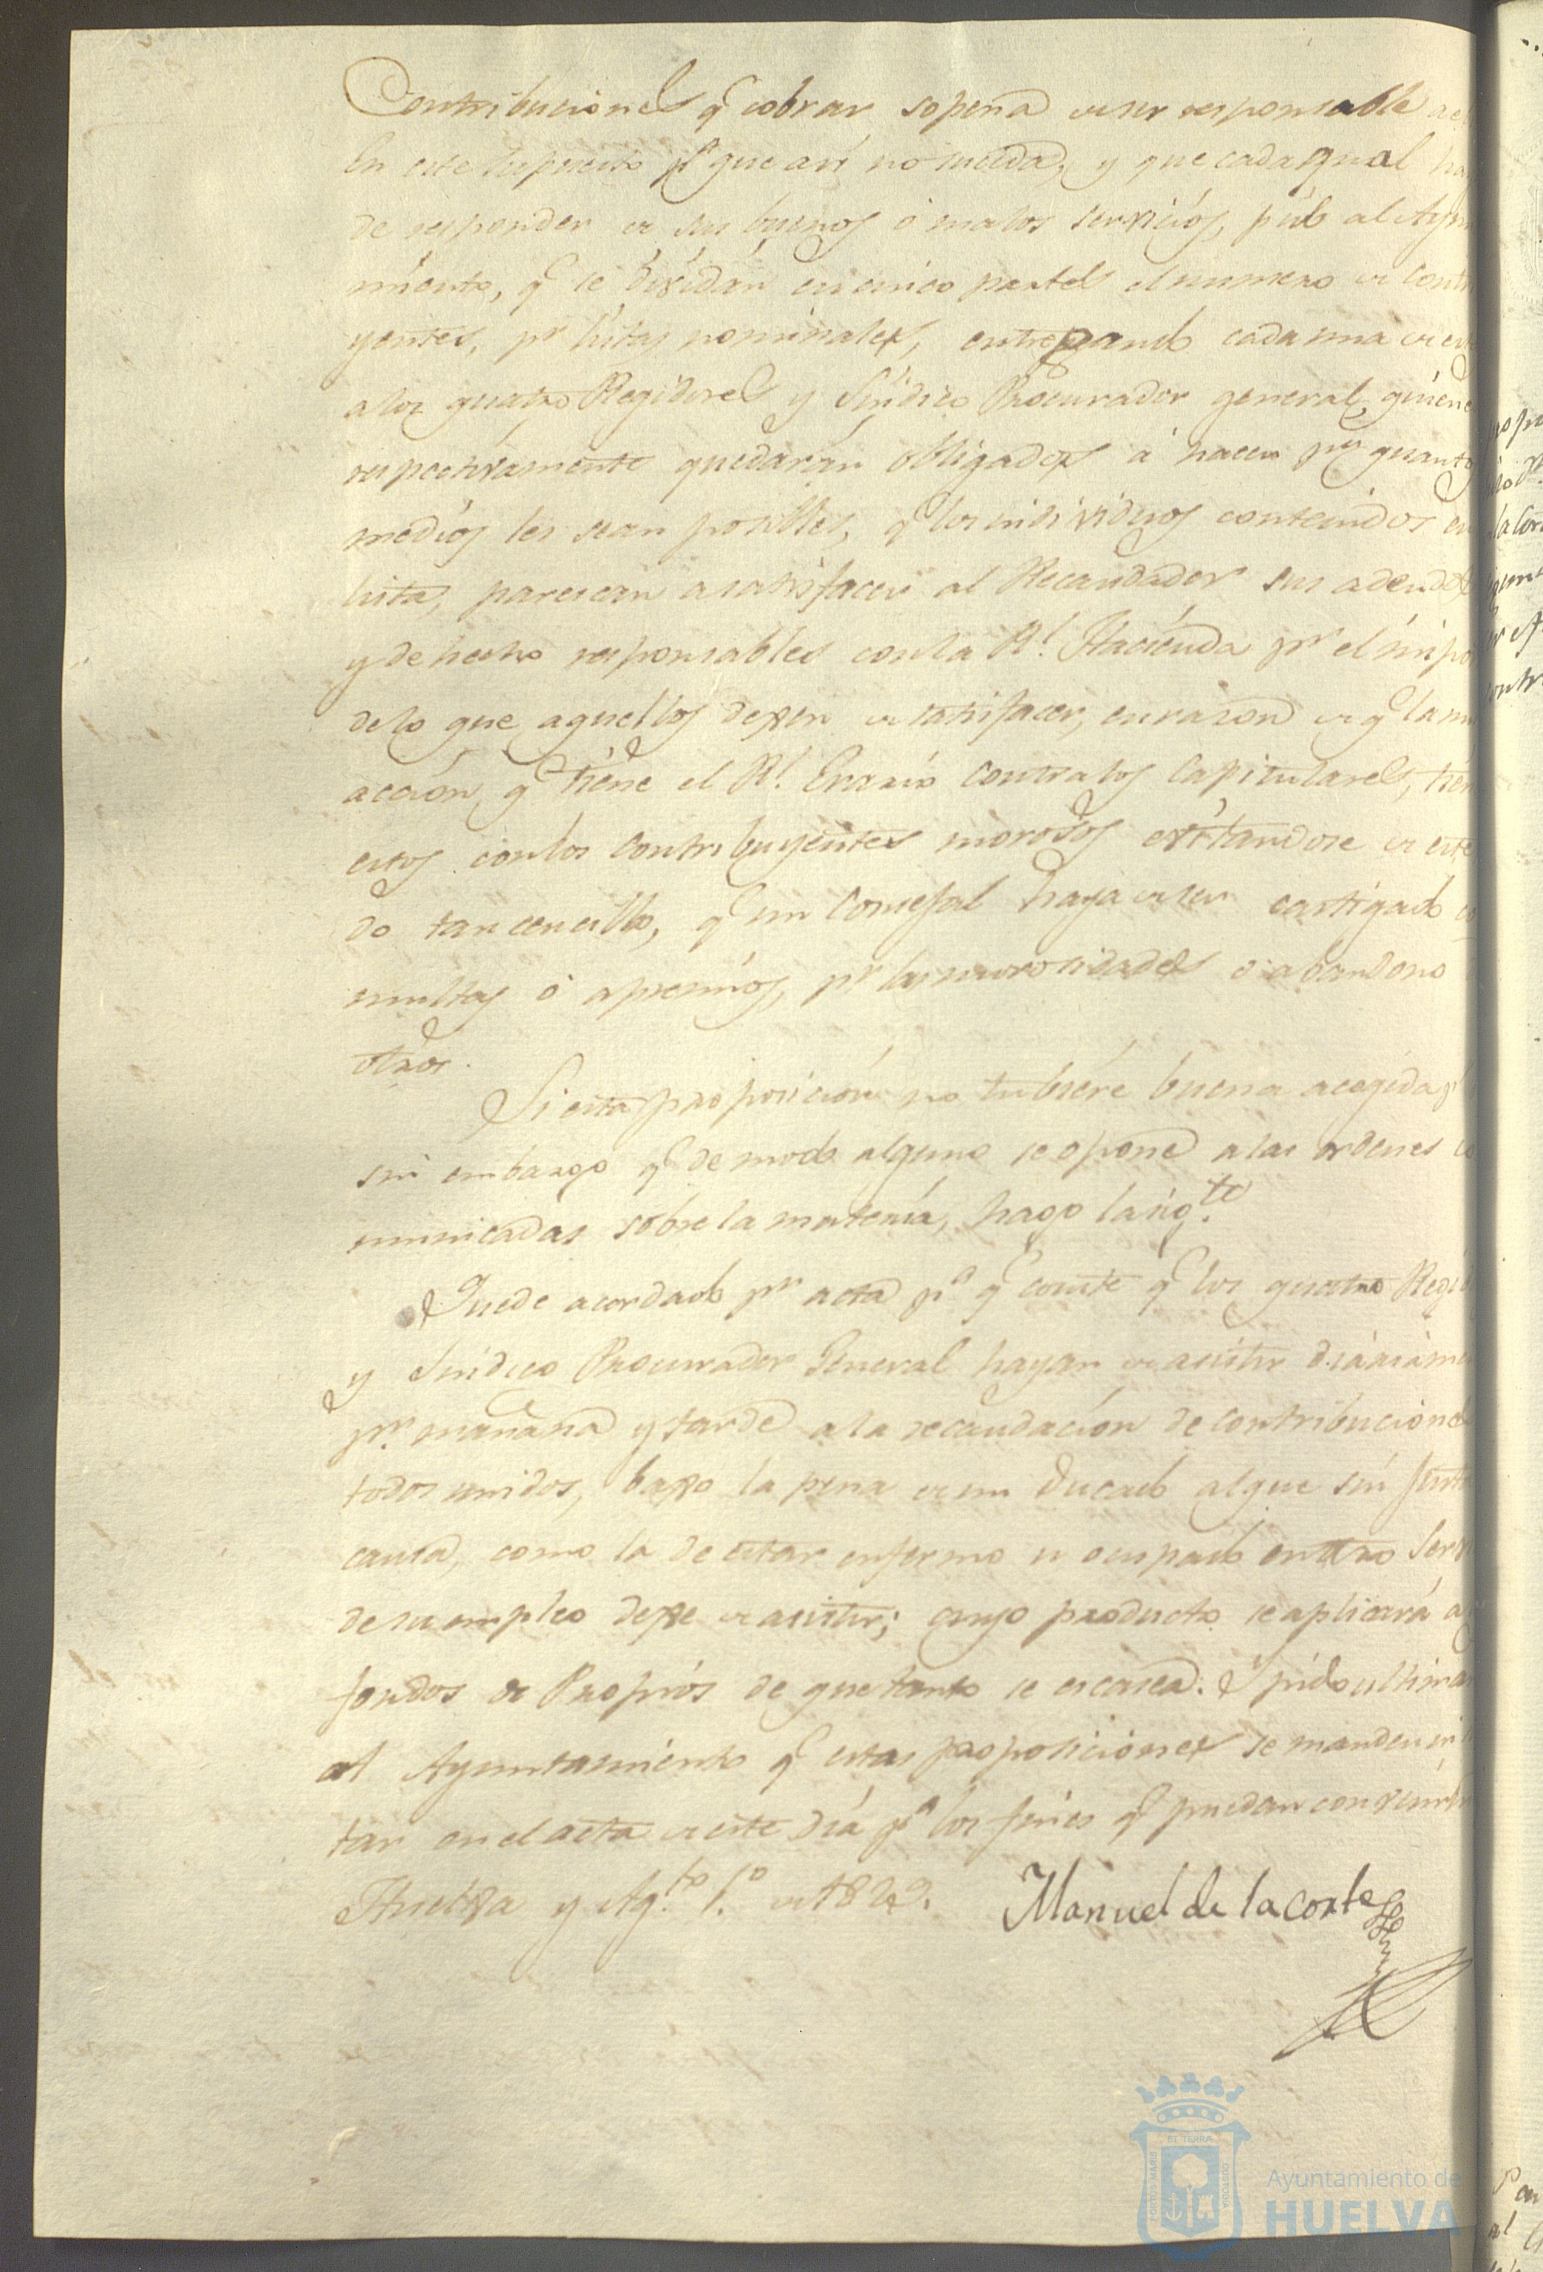 Contribuciones q.e cobrar sopena de ser responsable
En este supuesto p.a que asi no suceda, y que cada qual
de responder de sus buenos ó malos servicios, pido al Ayun
miento, q.e se dividan en cinco partes el numero de Contri
yentes, p.r listas nominales, entregando cada una de
a los quatro Regidores y Sindico Procurador general, quiene
respectivamente quedarán obligados á hacer p.r quantos
medios les sean posibles, q.e los individuos contenidos en
lista, parescan a satisfacer al Recaudador sus adeudos
y de hecho responsables con la R.l Hacienda p.r el impor
de lo que aquellos dexen de satisfacer, en razon de q.e la
accion q.e tiene el R.l Erario contra los Capitulares, tien
estos con los Contribuyentes morosos evitandose de este
do tan cencillo, q.e un Consejal haya de ser castigado
multas ó apremios, p.r las morosidades ó abandono
otros.
Si esta proposicion no tubiere buena acogida
sin embargo q.e de modo alguno se opone a las ordenes co
municadas sobre la materia, hago la sig.te
Quede acordado p.r acta p.a q.e conste q.e los quatro Regi
y Sindico Procurador General hayan de asistir diariame
p.r mañana y tarde a la recaudacion de contribucione
todos unidos, baxo la pena de un Ducado al que sin just
causa, como la de estar enfermo u ocupado en otro Serv
de su empleo dexe de asistir; cuyo producto se aplicará a
fondos de Propios de que tanto se escasea. Y pido ultima
al Ayuntamiento q.e estas proposiciones se manden in
tar en el acta de este dia p.a los fines q.e puedan convenir
Huelva y Ag.to 1.o de 1829.
Manuel de la Corte
PORTUS MARIS ET TERRAE CUSTODIA
Ayuntamiento de
HUELVA